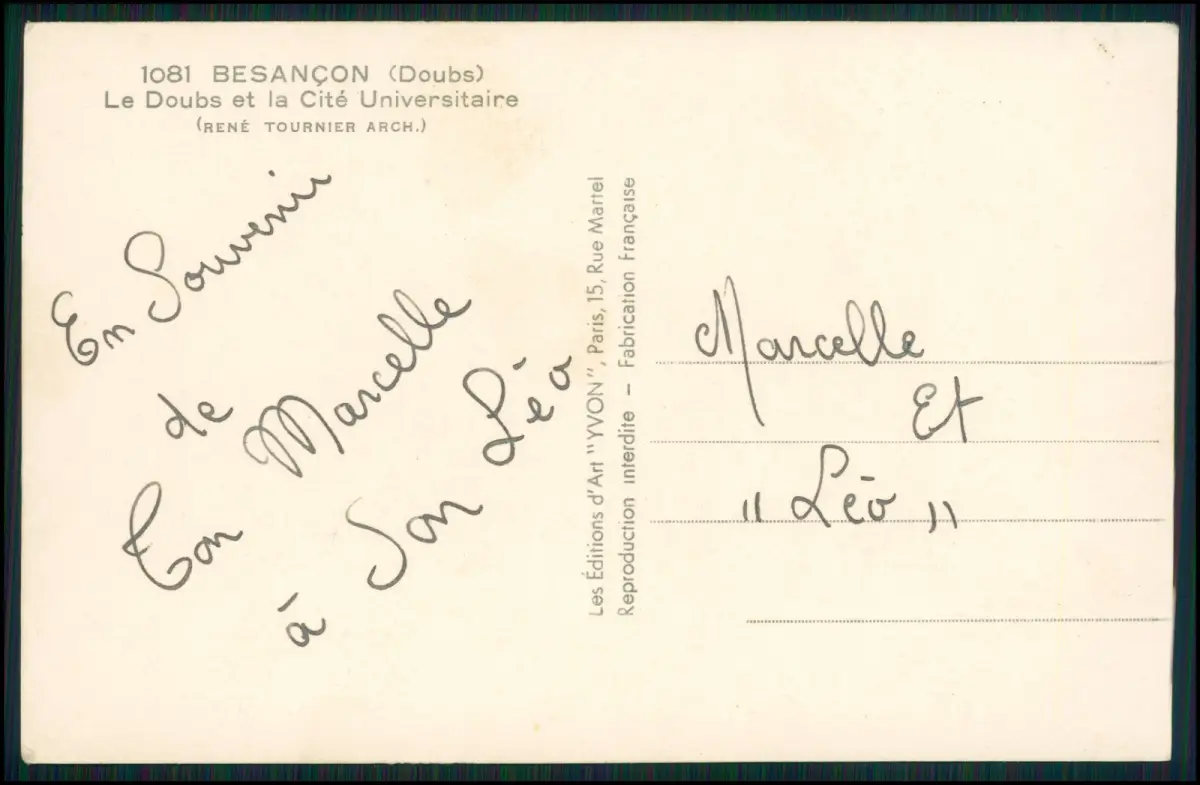 1081 BESANÇON (Doubs)
Le Doubs et la Cité Universitaire
(RENÉ TOURNIER ARCH.)
En Souvenir
de
Ton Marcelle
à Son Léo
Les Éditions d'Art "YVON", Paris, 15, Rue Martel
Reproduction interdite – Fabrication Française
Marcelle
Et
" Léo "